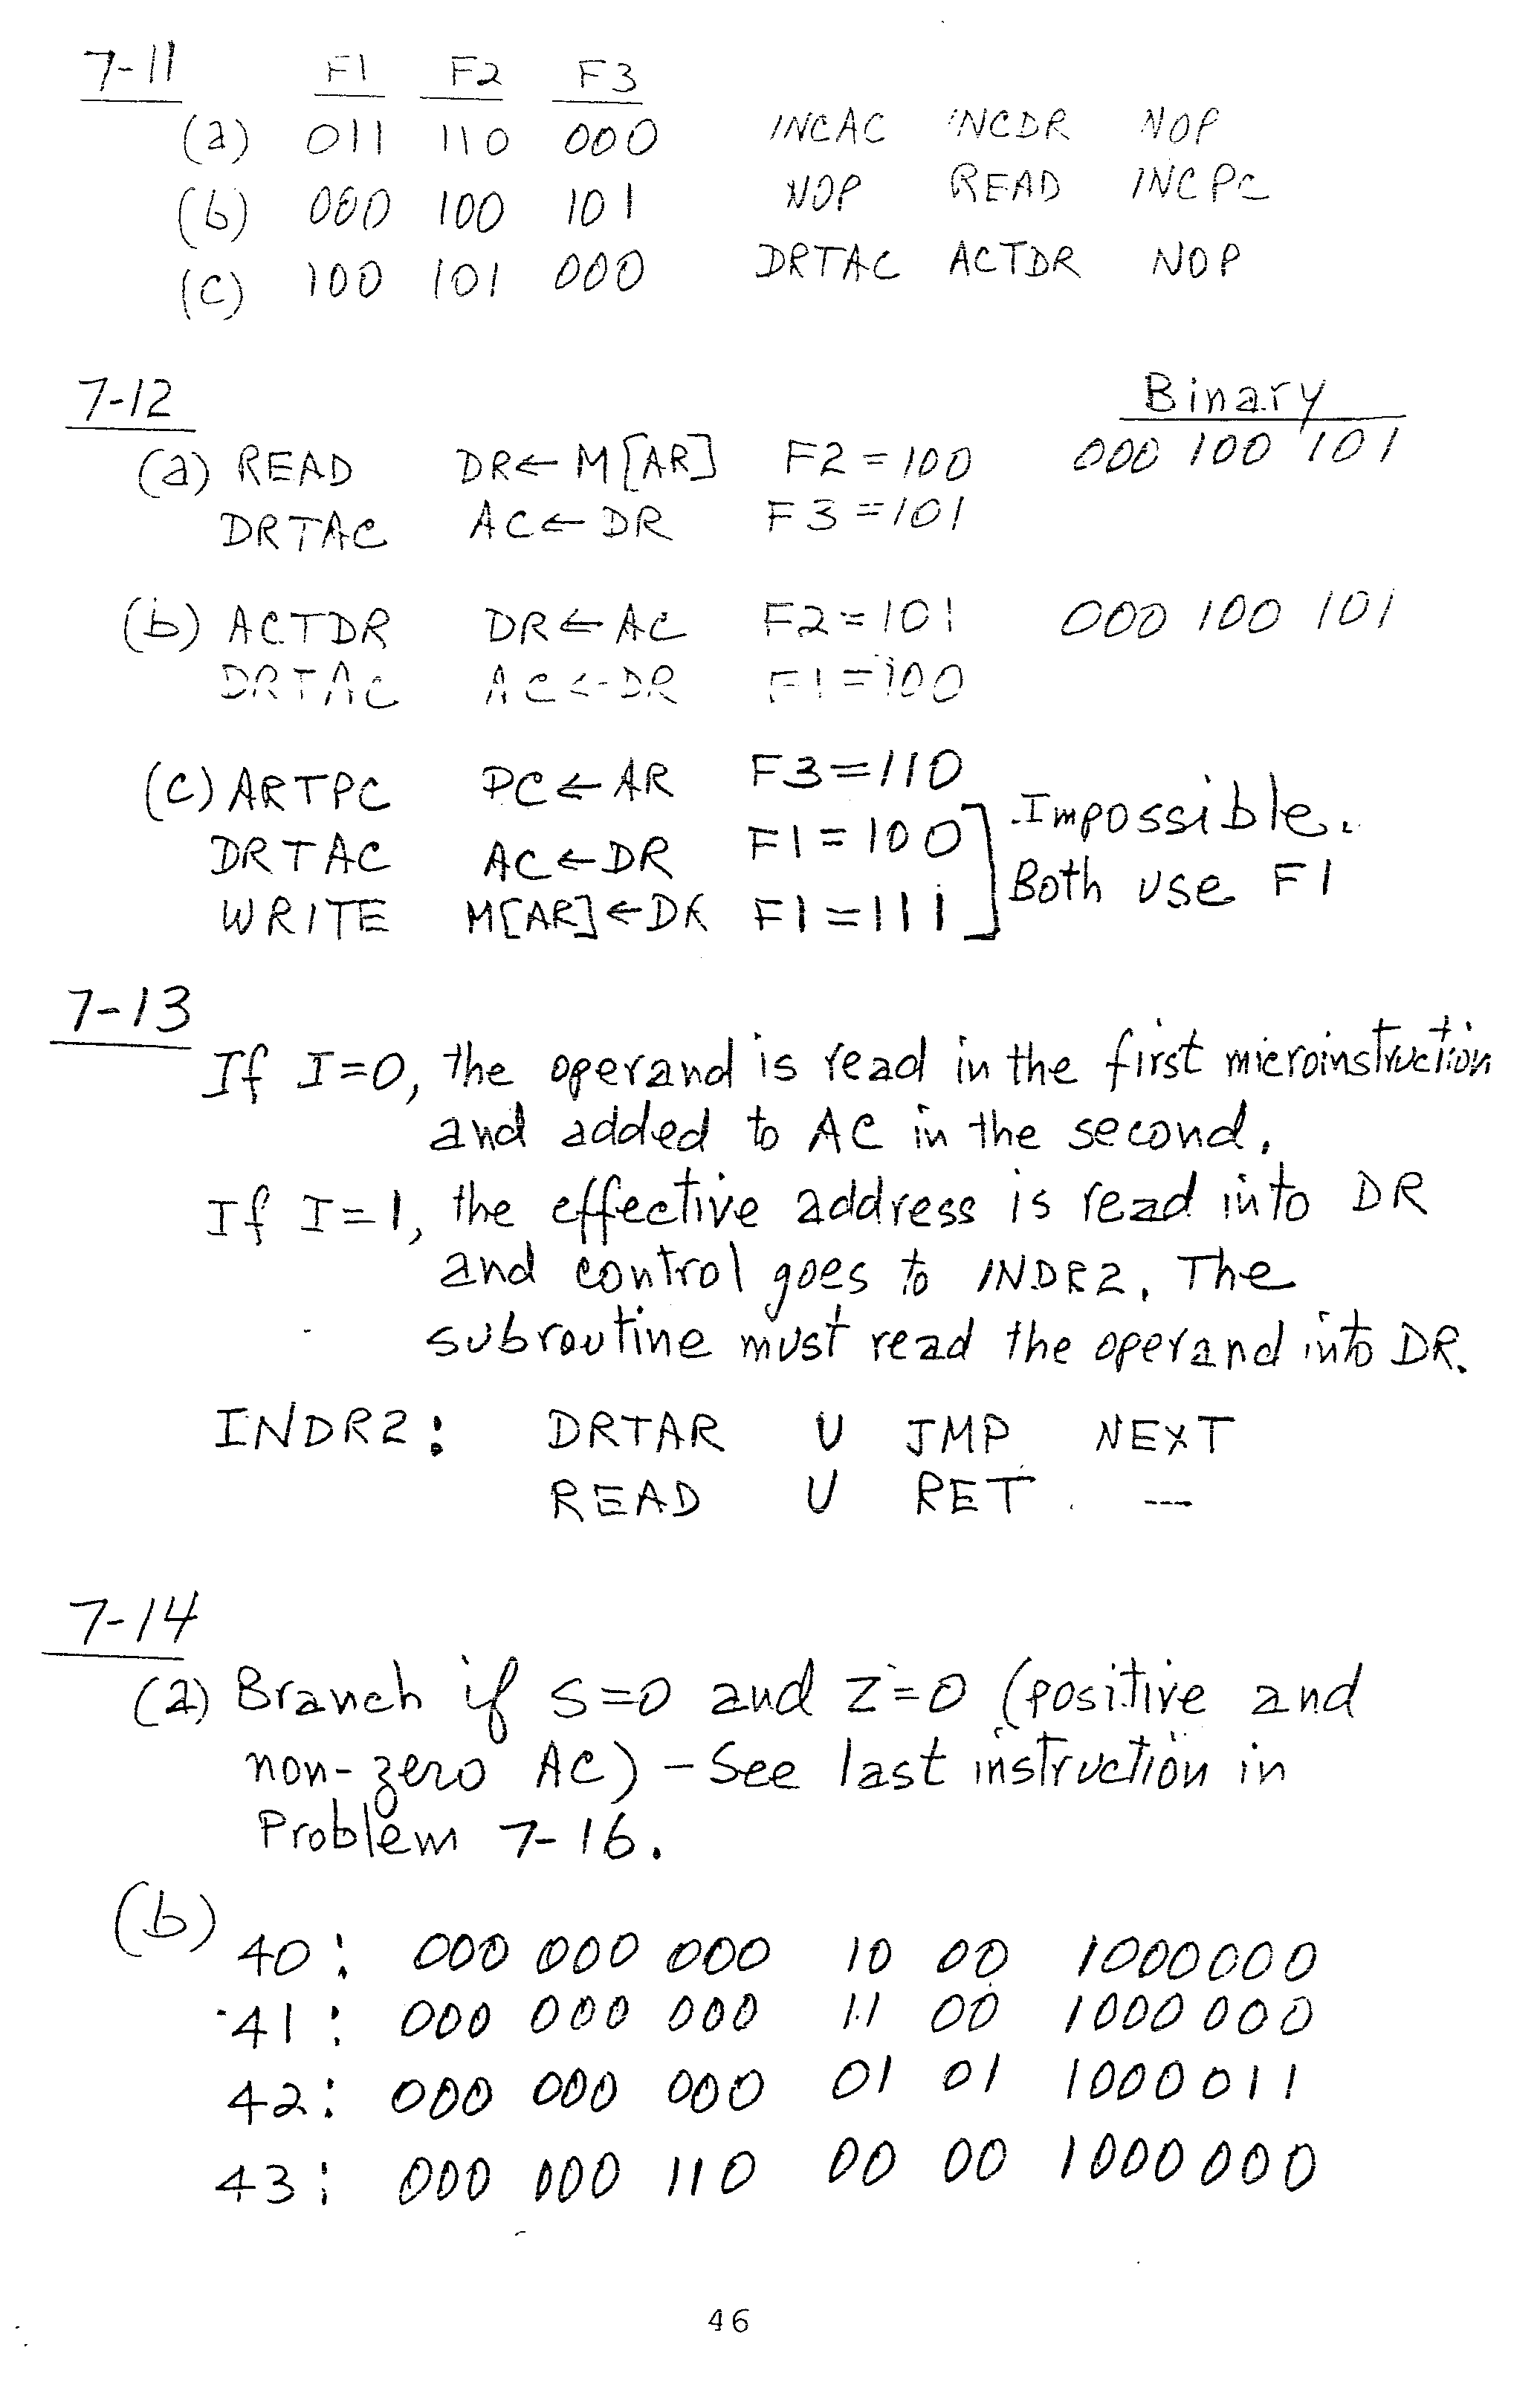 7-11 F1 F2 F3
(a) 011 110 000 INCAC INCDR NOP
(b) 000 100 101 NOP READ INCPC
(c) 100 101 000 DRTAC ACTDR NOP
7-12 Binary
(a) READ DR← M[AR] F2 = 100 000 100 101
DRTAC AC← DR F3 = 101
(b) ACTDR DR ← AC F2 = 101 000 100 101
DRTAC AC ← DR F1 = 100
(c) ARTPC PC ← AR F3 = 110
DRTAC AC ← DR F1 = 100 Impossible.
WRITE M[AR] ← DR F1 = 111 Both use F1
7-13
If I=0, the operand is read in the first microinstruction
and added to AC in the second.
If I=1, the effective address is read into DR
and control goes to INDR2. The
subroutine must read the operand into DR.
INDR2: DRTAR U JMP NEXT
READ U RET ---
7-14
(a) Branch if S=0 and Z=0 (positive and
non-zero AC) - See last instruction in
Problem 7-16.
(b)
40: 000 000 000 10 00 1000000
41: 000 000 000 11 00 1000000
42: 000 000 000 01 01 1000011
43: 000 000 110 00 00 1000000
46